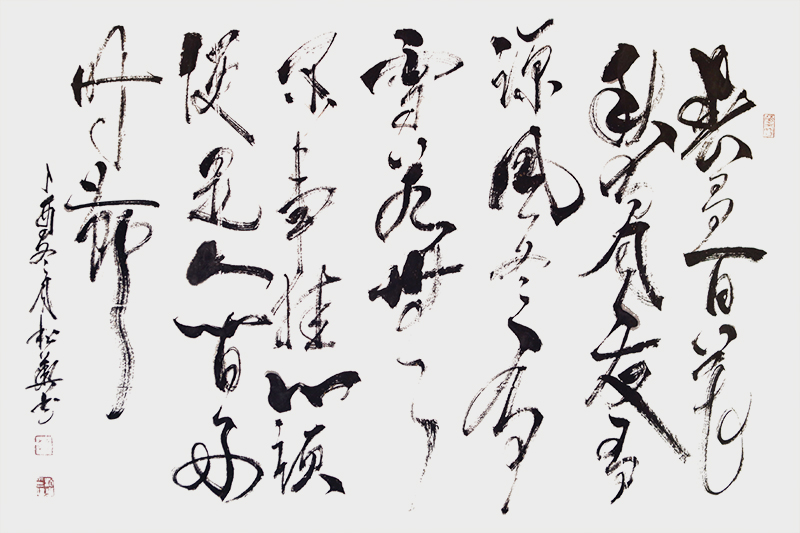 春有百花
秋有月夏有
凉风冬有
雪若無
闲事挂心頭
便是人间好
时節
丁酉冬月松華书